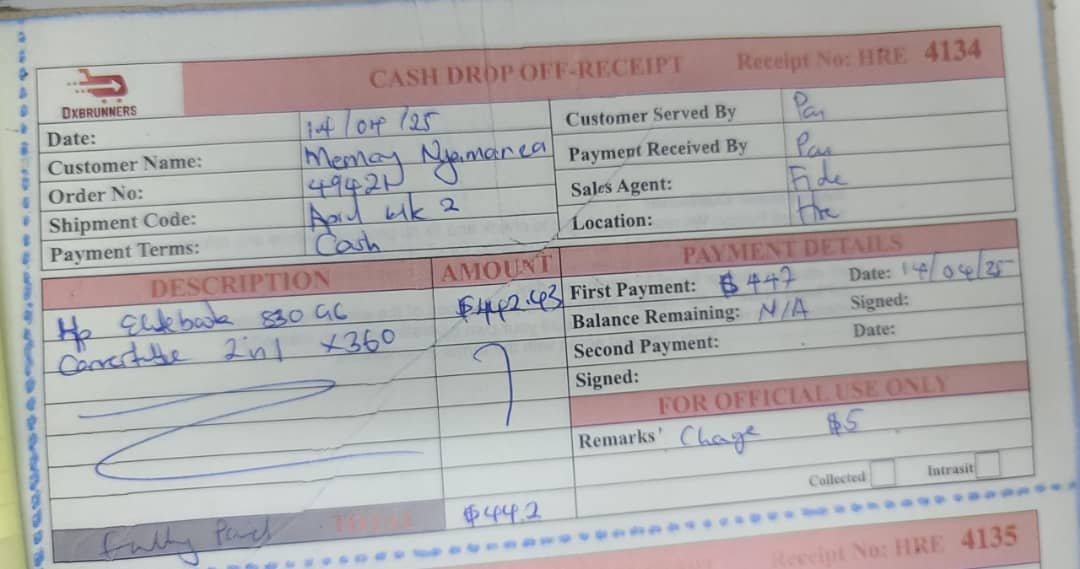 CASH DROP OFF-RECEIPT Receipt No: HRE 4134
DXBRUNNERS
Date: 14/04/25
Customer Name: Memory Nyamarea
Order No: 4942N
Shipment Code: April wk 2
Payment Terms: Cash
Customer Served By
Payment Received By
Sales Agent: Fide
Location: Hre
DESCRIPTION AMOUNT
Hp Elitebook 830 G6 $442.43
2in1 x360
TOTAL $442
Fully Paid
PAYMENT DETAILS
First Payment: $447 Date: 14/04/25
Balance Remaining: N/A Signed:
Second Payment: Date:
Signed:
FOR OFFICIAL USE ONLY
Remarks' Change $5
Collected Intrasit
Receipt No: HRE 4135